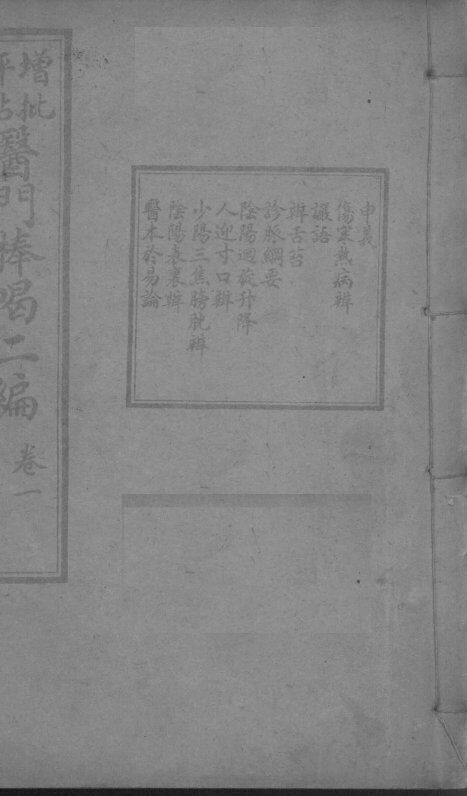 申義
傷寒熱病辨
讝語
辨舌苔
診脈綱要
陰陽迴旋升降
人迎寸口辨
少陽三焦膀胱辨
陰陽表裏辨
醫本於易論
增批
評點
醫門棒喝二編
卷一